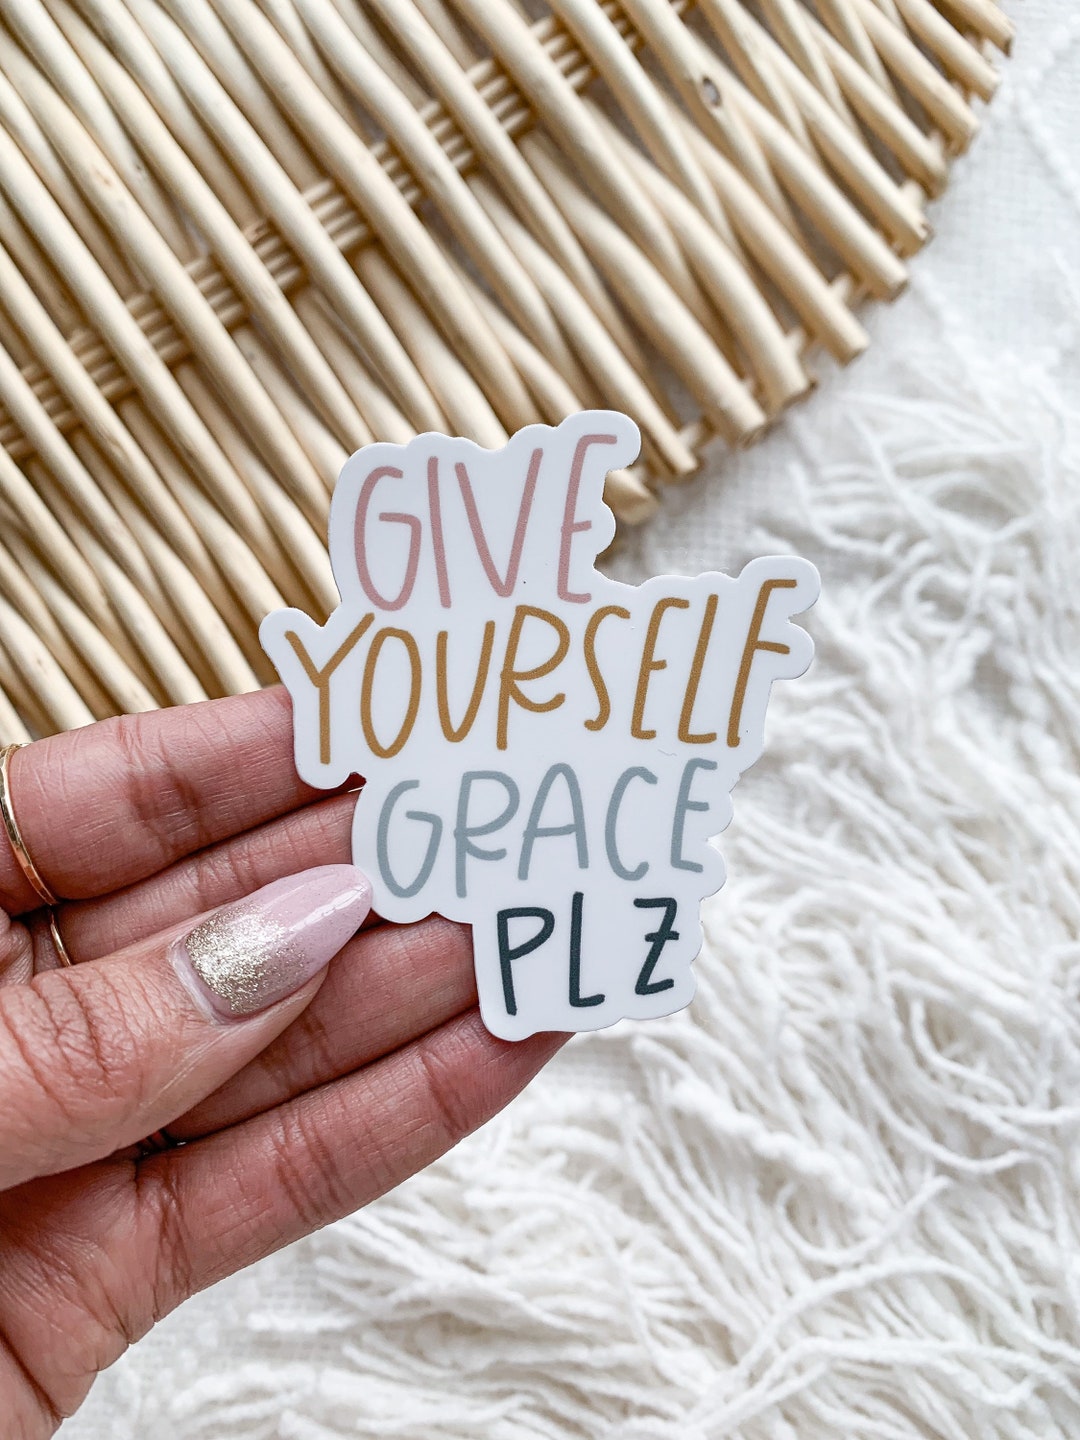 GIVE
YOURSELF
GRACE
PLZ